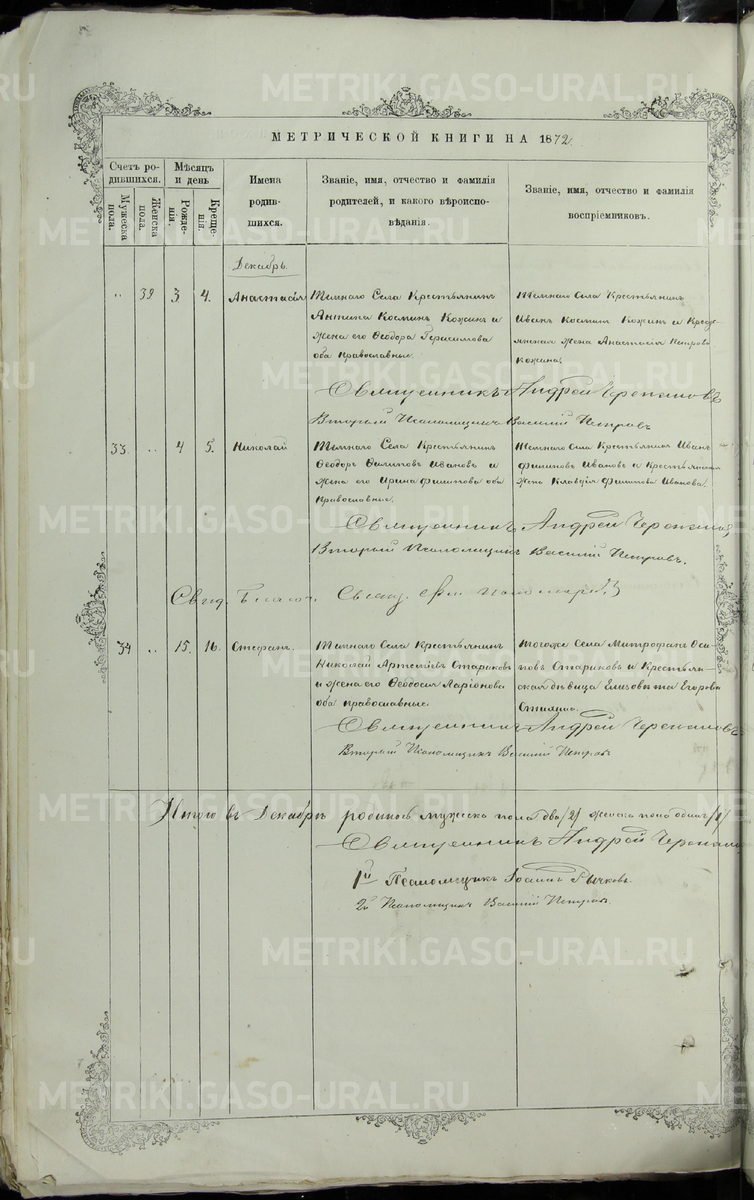 МЕТРИЧЕСКОЙ КНИГИ НА 1872
Счетъ ро-
дившихся.
Мужеска
пола.
Женска
пола.
Мѣсяцъ
и день
Рожде-
нія.
Креще-
нія.
Имена
родив-
шихся.
Званіе, имя, отчество и фамилія
родителей, и какого вѣроиспо-
вѣданія.
Званіе, имя, отчество и фамилія
воспріемниковъ.
Декабрь.
39 3 4. Анастасія
Села Крестьянинъ
Антипа Косминъ Кожинъ и
жена его Ѳеодора Герасимова
оба православные.
Села Крестьянинъ
Иванъ Косминъ Кожинъ и
жена Анастасія Петрова
Кожина.
Священникъ Андрей Черепановъ
Второй Псаломщикъ Василій Петровъ
33 4 5. Николай
Села Крестьянинъ
Ѳеодоръ Филиповъ Ивановъ и
жена его Ирина Филипова оба
православные.
Села Крестьянинъ Иванъ
Филиповъ Ивановъ и Крестьянская
жена Клавдія Филипова Иванова.
Священникъ Андрей Черепановъ
Второй Псаломщикъ Василій Петровъ.
34 15. 16. Стефанъ.
Села Крестьянинъ
Николай Артемьевъ Стариковъ
и жена его Ѳеодосія Ларіонова
оба православные.
тогоже Села Митрофанъ Оси-
повъ Стариковъ и Крестьян-
ская дѣвица Елизовета Егорова
Священникъ Андрей Черепановъ
Второй Псаломщикъ Василій Петровъ
Итого въ Декабрѣ родилось мужеска пола два /2/ женска пола одна /1/
Священникъ Андрей Черепановъ
1й Псаломщикъ Іоаннъ Бычковъ
2й Псаломщикъ Василій Петровъ.
METRIKI.GASO-URAL.RU